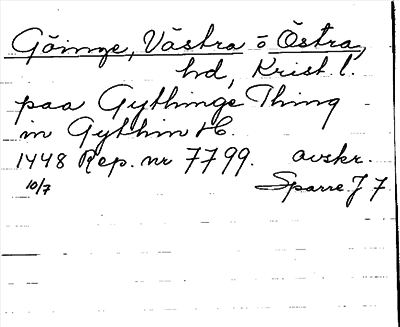 Göinge, Västra o Östra,
hd, Krist. l.
paa Gythinge Thing
in Gythin H.
1448 Rep. nr 7799. avskr.
10/7 Sparre J 7